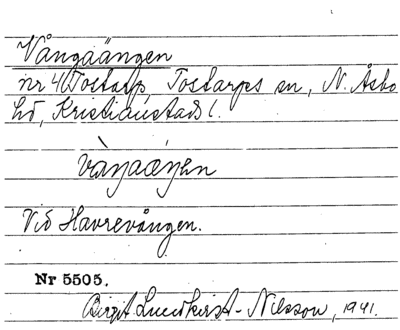 Vångaängen
nr 4 Tostarp, Tostarps sn, N. Åsbo
hd, Kristianstads l.
Vid Havrevången.
Nr 5505.
Birgit Lundkvist-Nilsson, 1941.